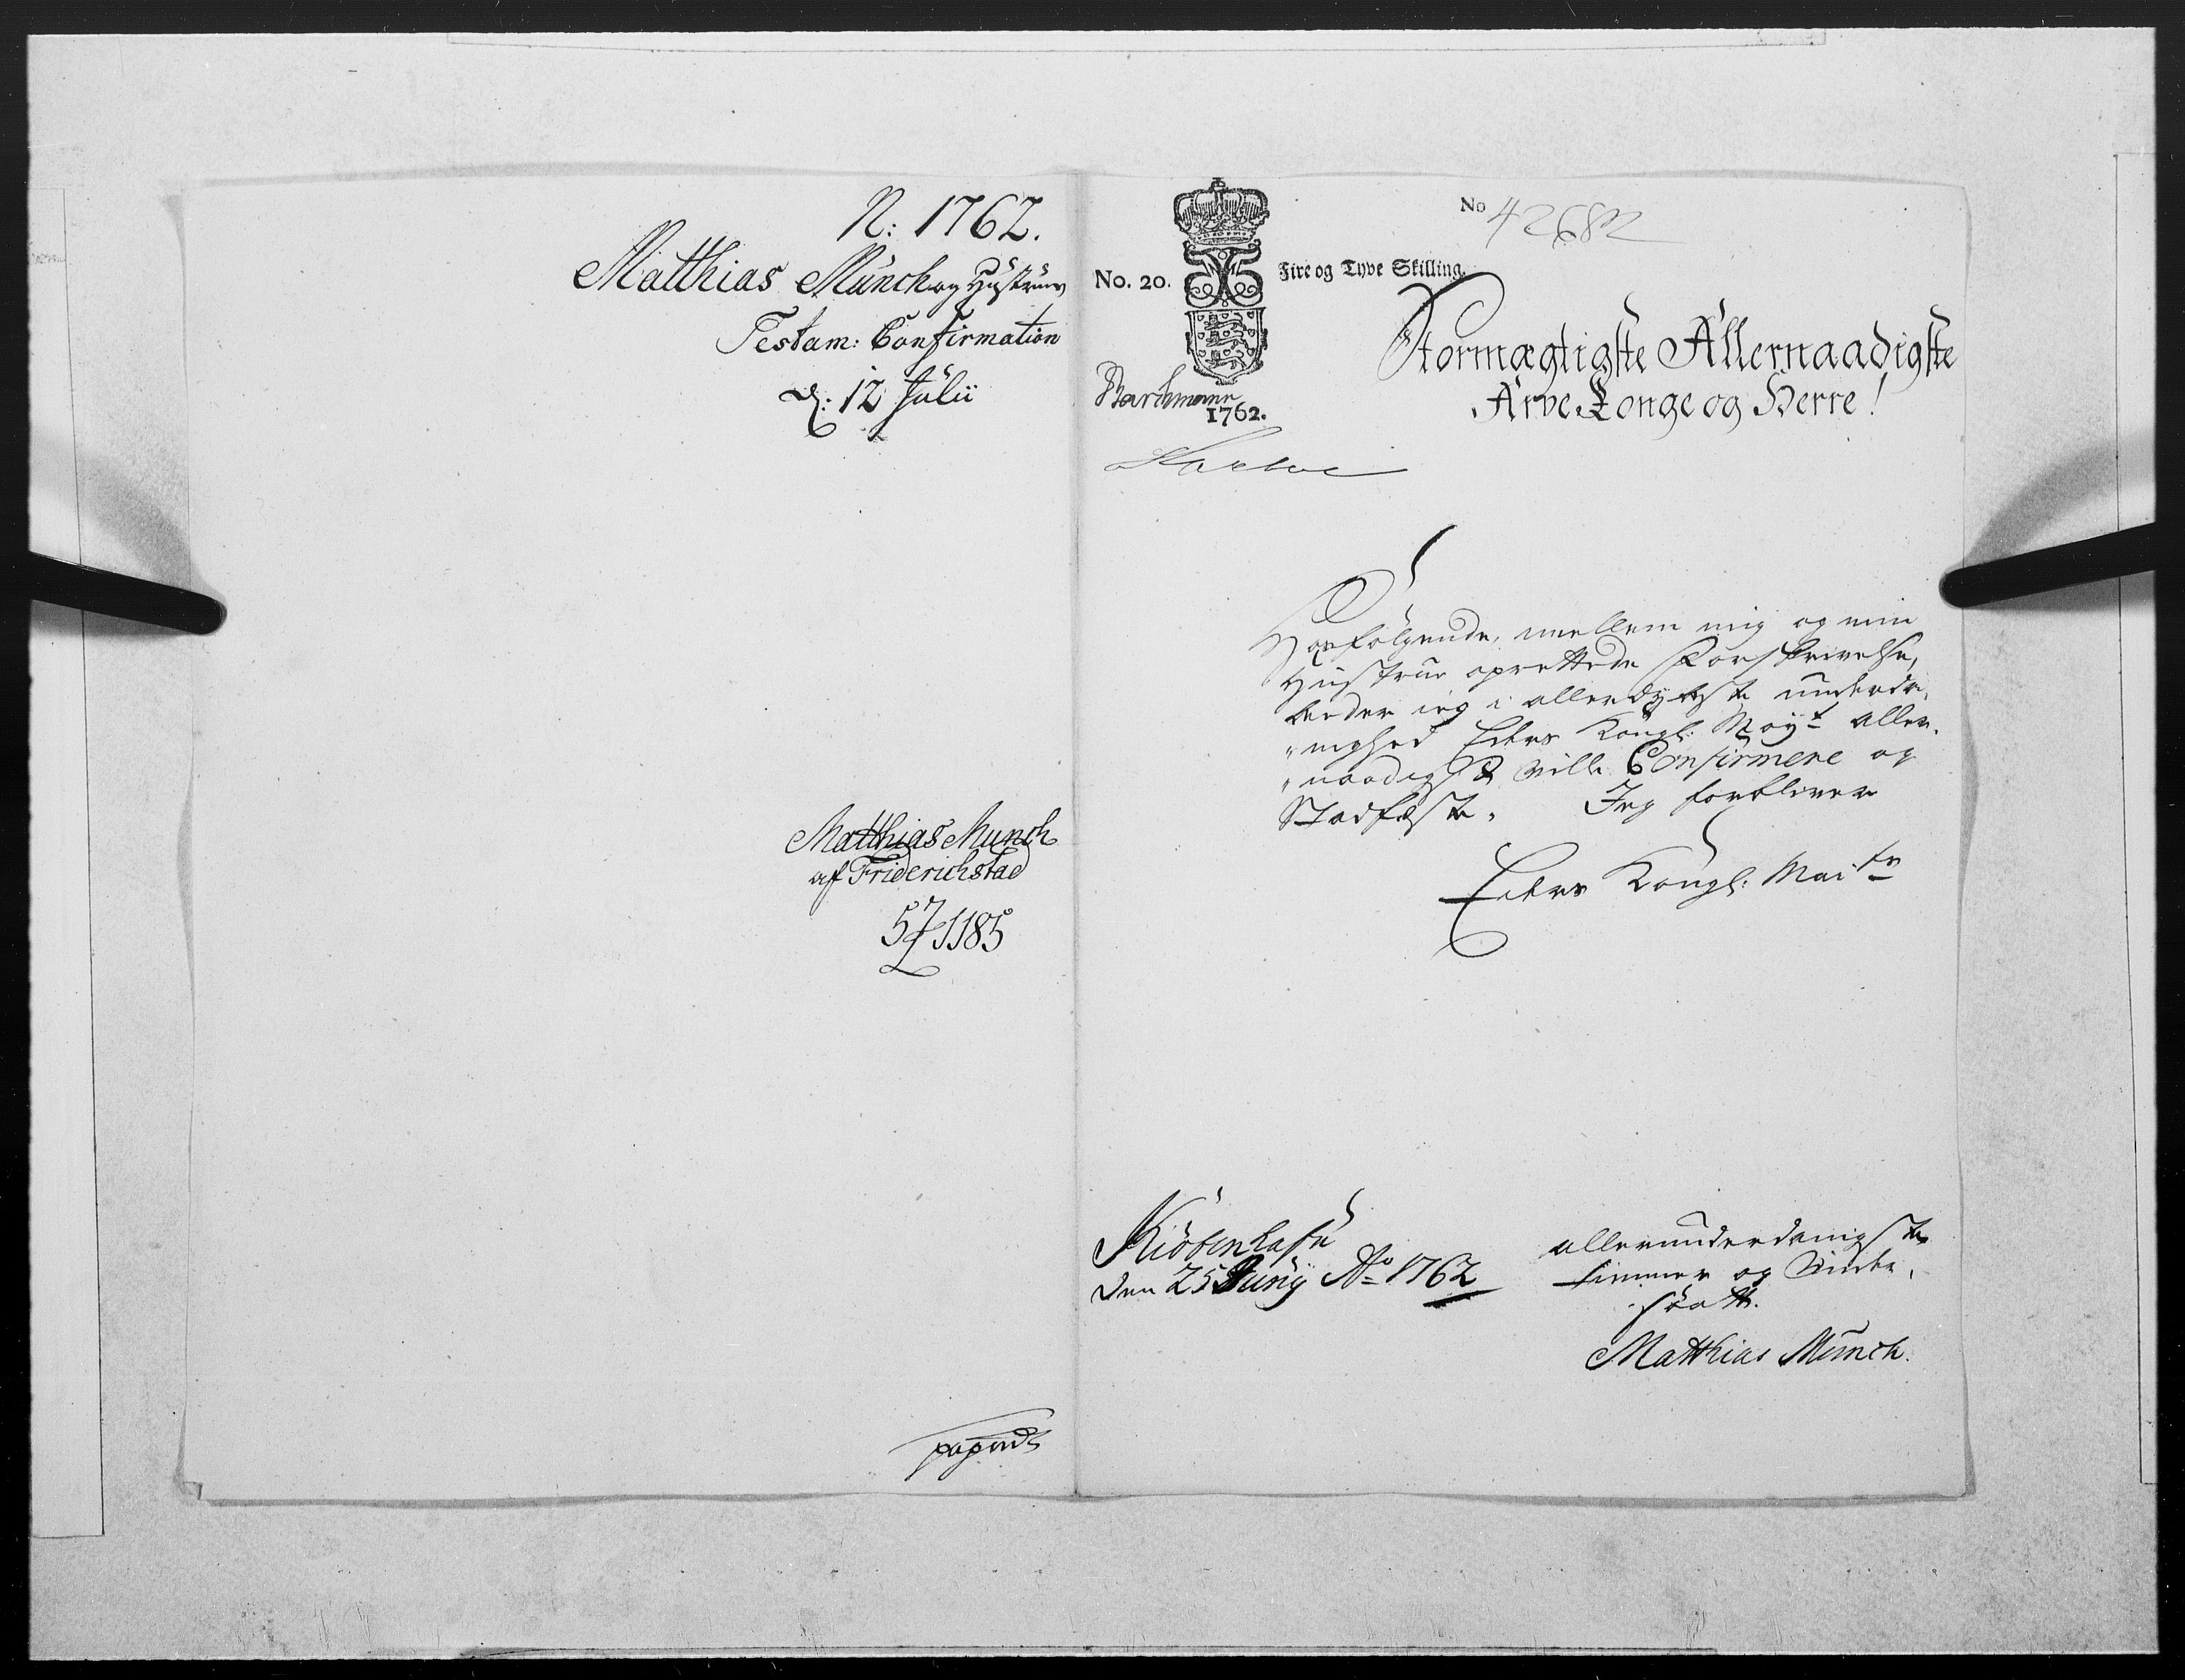 N: 1762.
Matthias Münch og Hustrues
Testam: Confirmation
d: 12 Julii
Matthias Munch
af Friderichstad
1185
No 42682
No. 20. Fire og Tyve Skilling.
1762.
Stormægtigste Allernaadigste
Arve Konge og Herre!
Hosfølgende, mellem mig og min
Hustrue oprettede Forskrivelse,
beder ieg i allerdybeste underda¬
„nighed Eders Kongl: Mayt aller¬
„naadigst ville Confirmere og
Stadfæste. Jeg forbliver
Eders Kongl: Maits
Kiöbenhafn
den 25 Junij Ao 1762
allerunderdanigste
og
Matthias Münch.